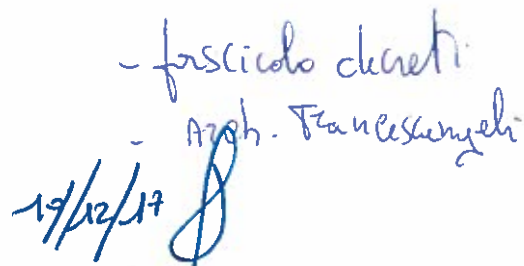 - fascicolo decreti
- Arch. Francescangeli
19/12/17